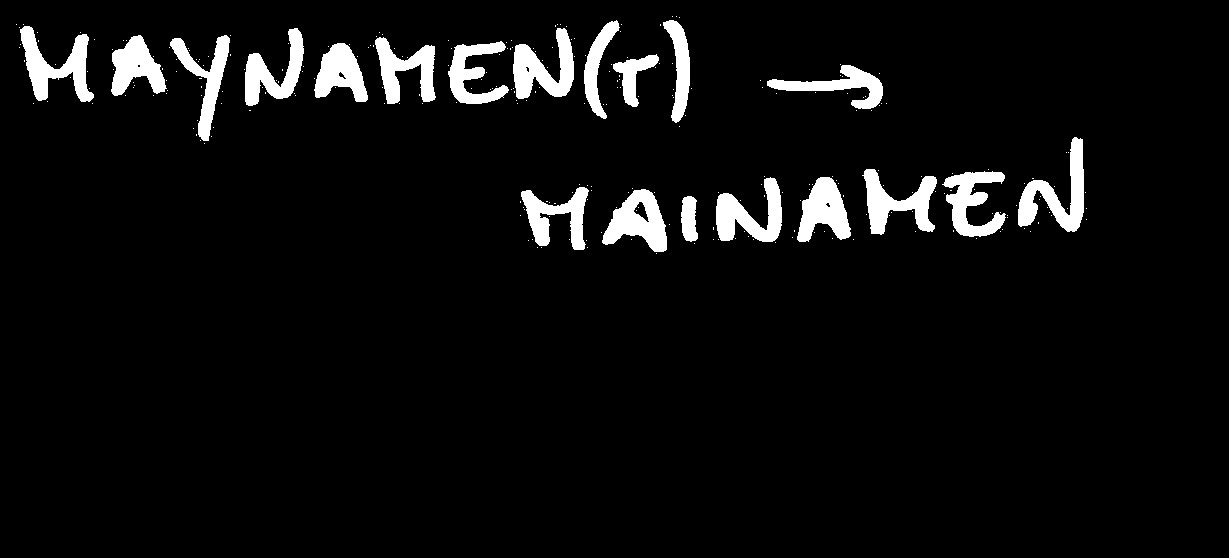 MAYNAMEN(T) →
MAINAMEN